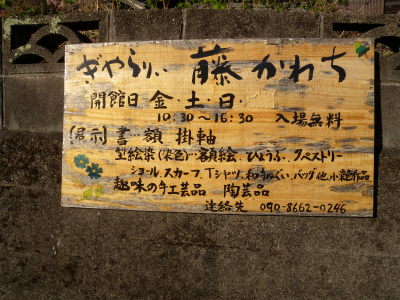 ぎゃらりぃ 藤かわち
開館日 金・土・日・
10:30～16:30 入場無料
〔展示〕書・額 掛軸
型絵染(染色)…額絵、びょうぶ、タペストリー
ショール、スカーフ、Tシャツ、和手ぬぐい、バッグ他、小裂作品
趣味の手工芸品 陶芸品
連絡先 090-8662-0246